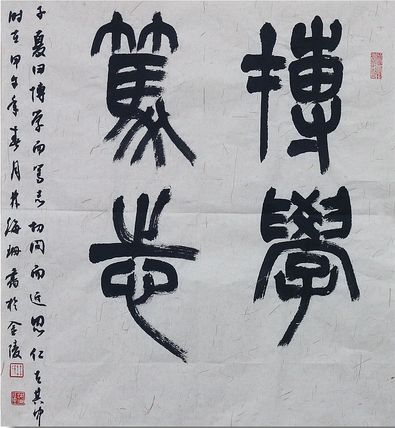 博學
篤志
子夏曰博学而笃志切问而近思仁在其中
时在甲午年春月海珊書於金陵